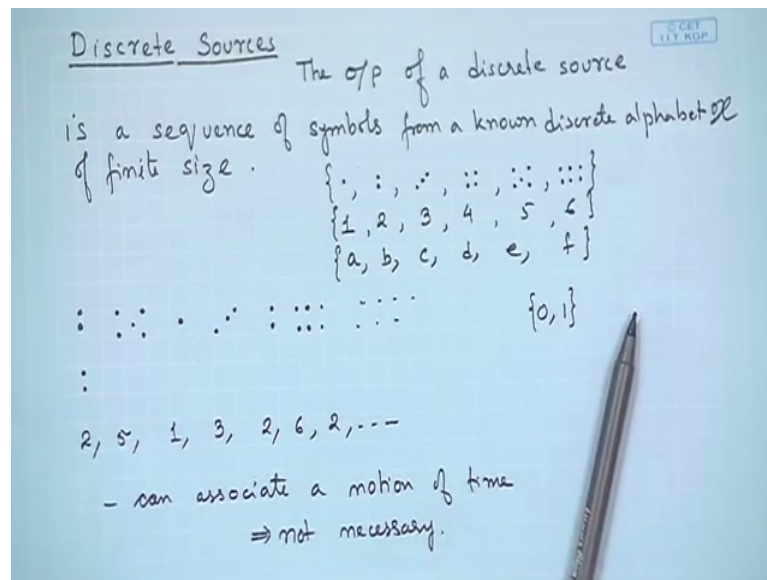 Discrete Sources
© CET
I.I.T. KGP
The o/p of a discrete source
is a sequence of symbols from a known discrete alphabet 𝒳
of finite size.
{⋅, :, ⋰, ::, ⁙, :::}
{1, 2, 3, 4, 5, 6}
{a, b, c, d, e, f}
{0, 1}
2, 5, 1, 3, 2, 6, 2, ---
- can associate a notion of time
⇒ not necessary.